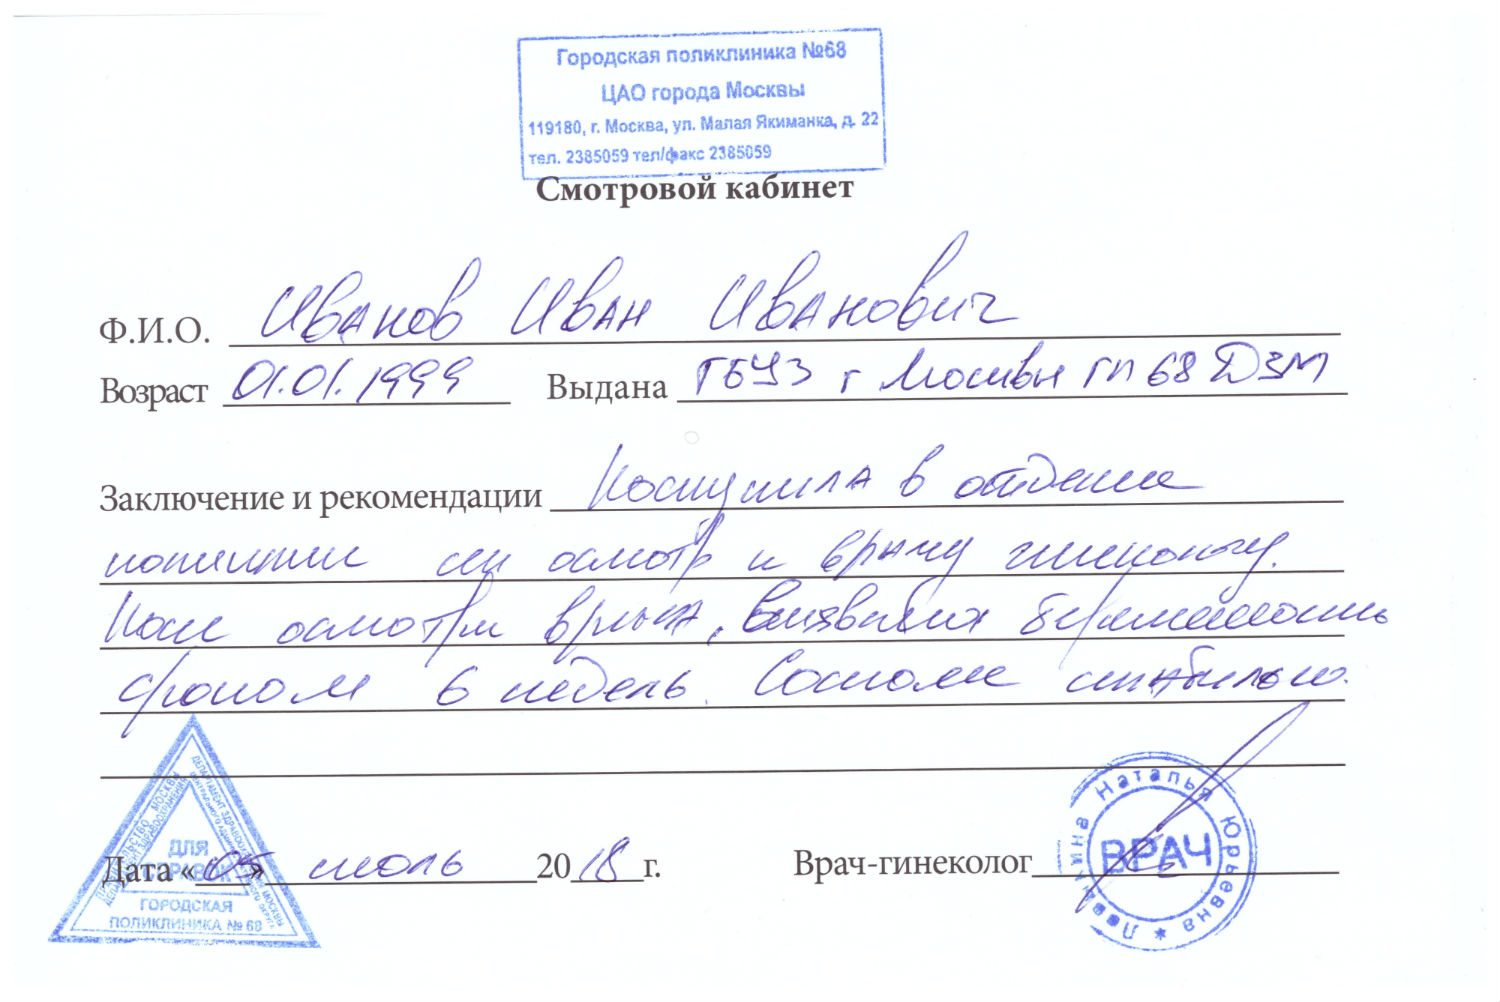 Городская поликлиника №68
ЦАО города Москвы
119180, г. Москва, ул. Малая Якиманка, д. 22
тел. 2385059 тел/факс 2385059
Смотровой кабинет
Ф.И.О. Иванов Иван Иванович
Возраст 01.01.1999 Выдана ГБУЗ г Москвы ГП 68 ДЗМ
Заключение и рекомендации Поступила в отделение
на осмотр к врачу гинекологу.
После осмотра врача, выявлена беременность
сроком 6 недель. Состояние стабильно.
Дата «05» июль 2018 г. Врач-гинеколог
ДЛЯ
ГОРОДСКАЯ
ПОЛИКЛИНИКА № 68
Наталья Юрьевна
ВРАЧ